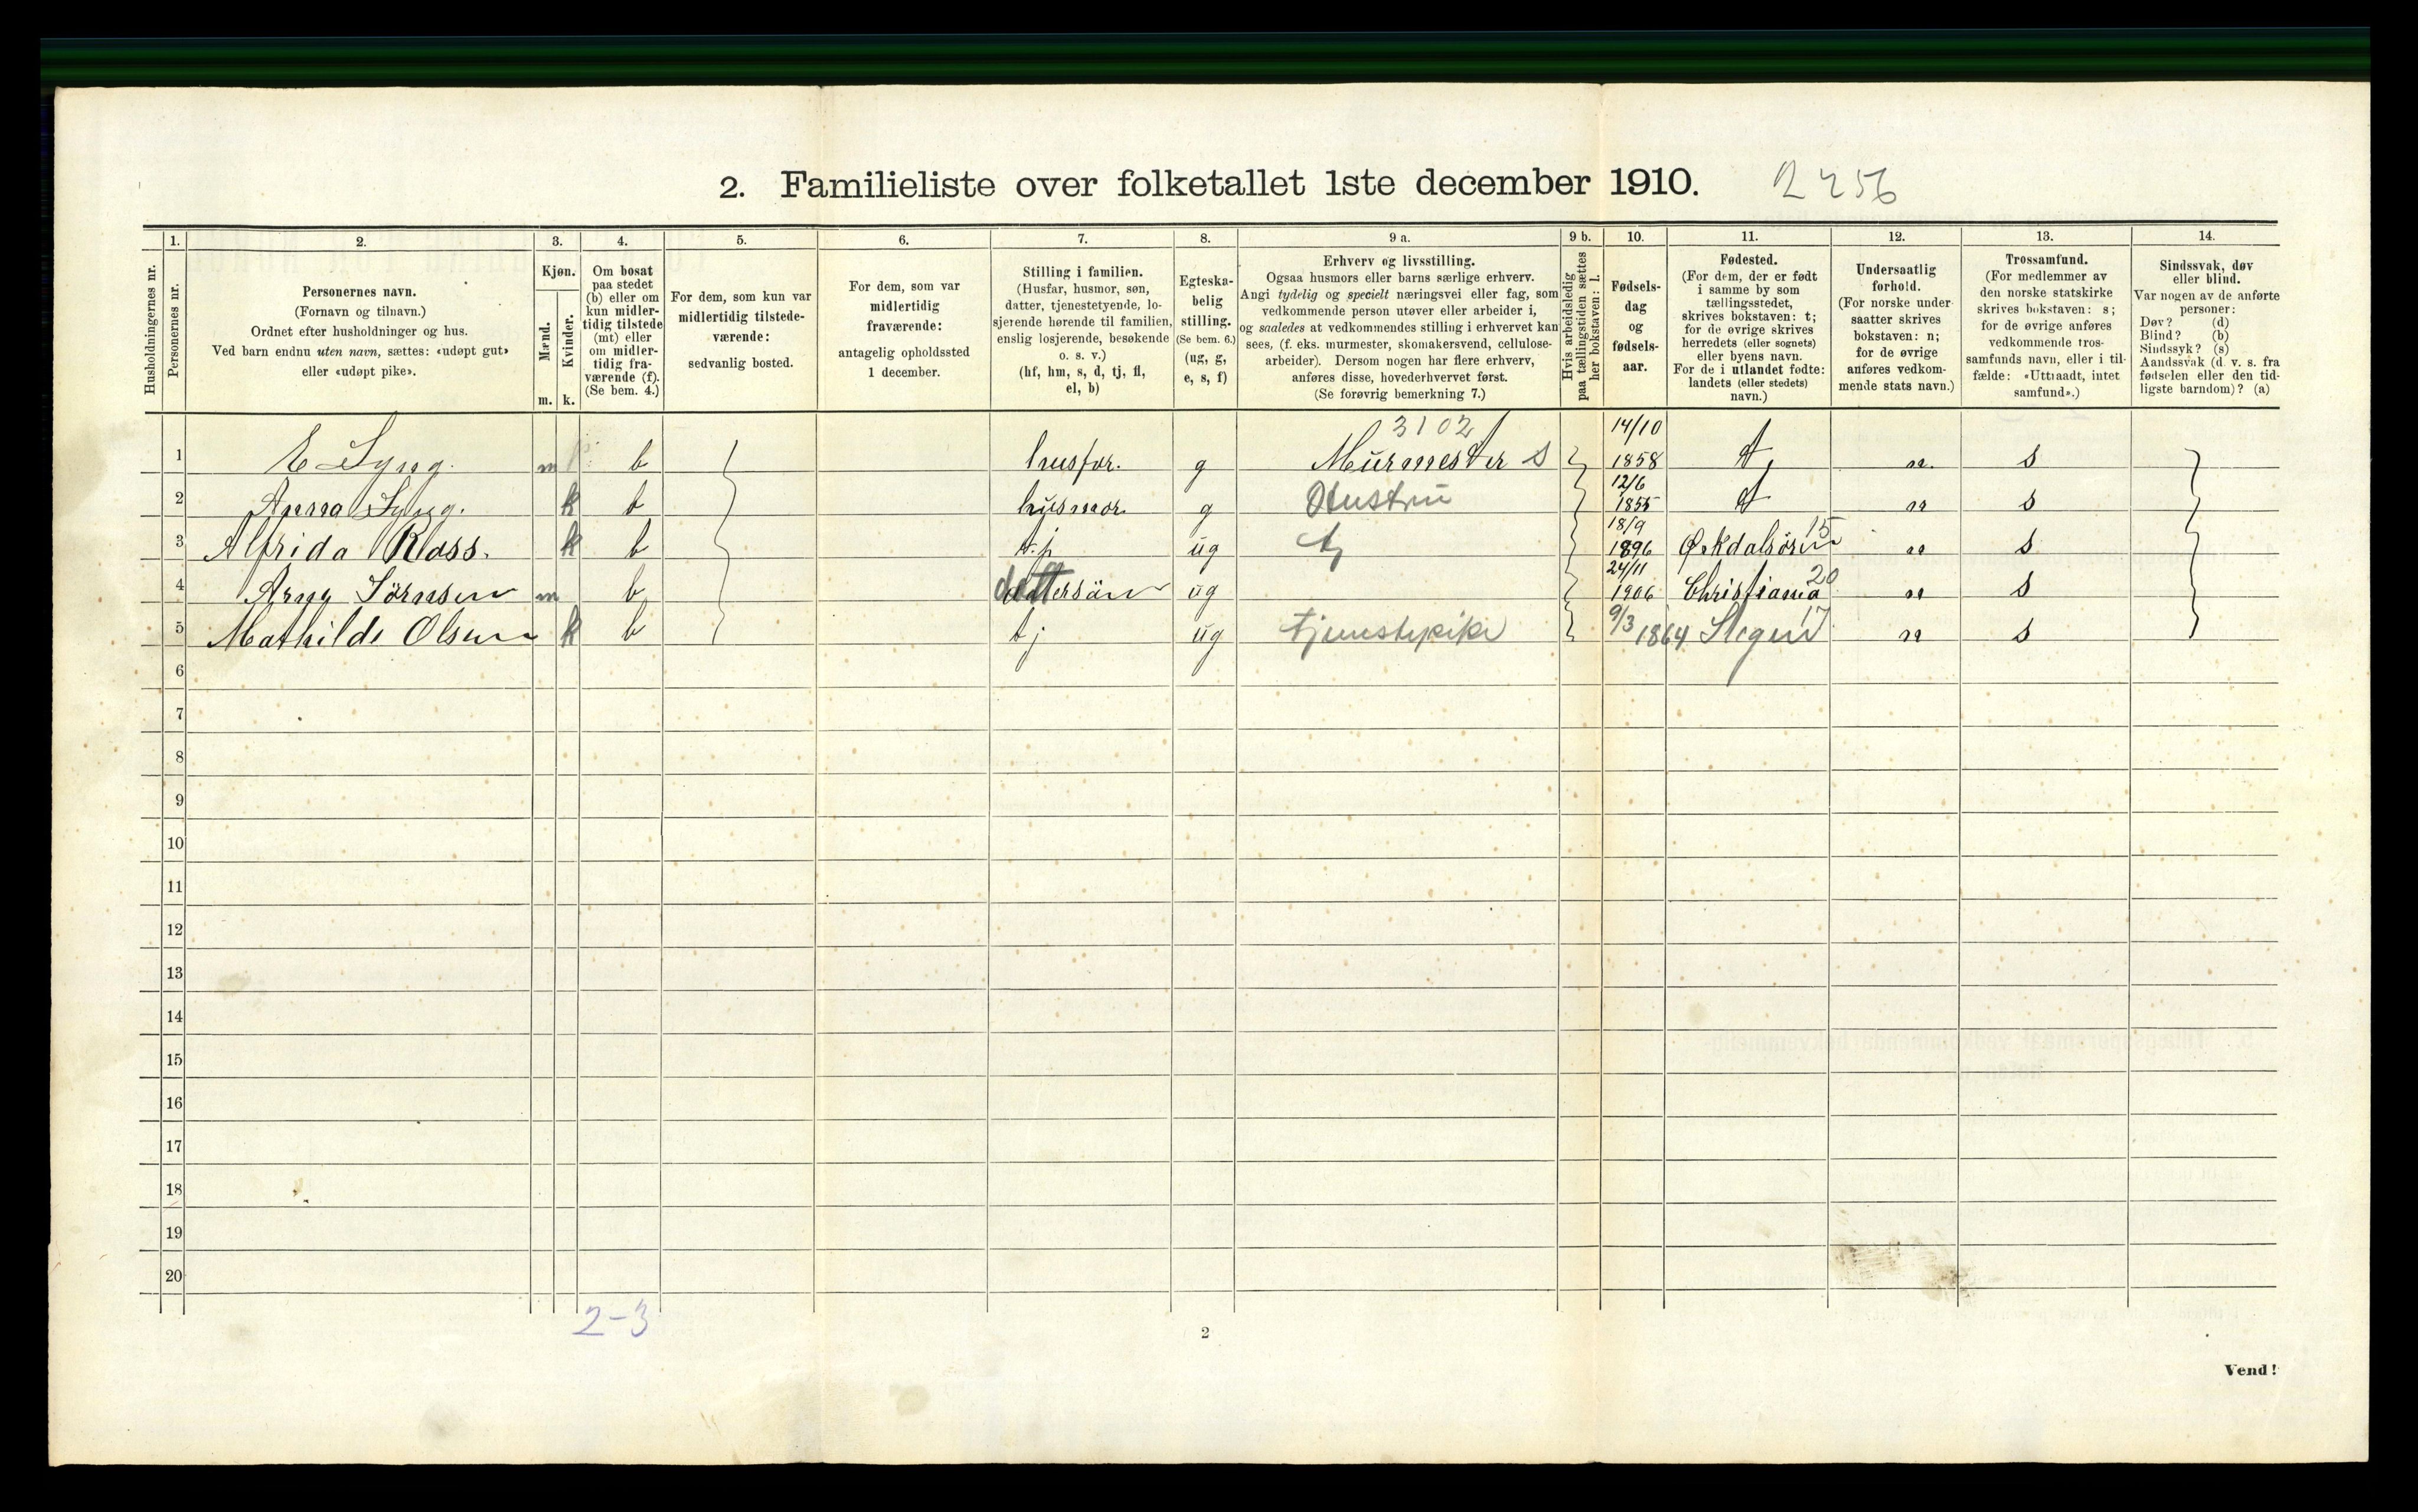 2. Familieliste over folketallet 1ste december 1910. 2256
1. 2. 3. 4. 5. 6. 7. 8. 9 a. 9 b. 10. 11. 12. 13. 14.
Husholdningernes nr.
Personernes nr.
Personernes navn.
(Fornavn og tilnavn.)
Ordnet efter husholdninger og hus.
Ved barn endnu uten navn, sættes: «udøpt gut»
eller «udøpt pike».
Kjøn.
Mænd.
Kvinder.
m. k.
Om bosat
paa stedet
(b) eller om
kun midler-
tidig tilstede
(mt) eller
om midler-
tidig fra-
værende (f).
(Se bem. 4.)
For dem, som kun var
midlertidig tilstede-
værende:
sedvanlig bosted.
For dem, som var
midlertidig
fraværende:
antagelig opholdssted
1 december.
Stilling i familien.
(Husfar, husmor, søn,
datter, tjenestetyende, lo-
sjerende hørende til familien,
enslig losjerende, besøkende
o. s. v.)
(hf, hm, s, d, tj, fl,
el, b)
Egteska-
belig
stilling.
(Se bem. 6.)
(ug, g,
e, s, f)
Erhverv og livsstilling.
Ogsaa husmors eller barns særlige erhverv.
Angi tydelig og specielt næringsvei eller fag, som
vedkommende person utøver eller arbeider i,
og saaledes at vedkommendes stilling i erhvervet kan
sees, (f. eks. murmester, skomakersvend, cellulose-
arbeider). Dersom nogen har flere erhverv,
anføres disse, hovederhvervet først.
(Se forøvrig bemerkning 7.)
Hvis arbeidsledig
paa tællingstiden sættes
her bokstaven: l.
Fødsels-
dag
og
fødsels-
aar.
Fødested.
(For dem, der er født
i samme by som
tællingsstedet,
skrives bokstaven: t;
for de øvrige skrives
herredets (eller sognets)
eller byens navn.
For de i utlandet fødte:
landets (eller stedets)
navn.)
Undersaatlig
forhold.
(For norske under-
saatter skrives
bokstaven: n;
for de øvrige
anføres vedkom-
mende stats navn.)
Trossamfund.
(For medlemmer av
den norske statskirke
skrives bokstaven: s;
for de øvrige anføres
vedkommende tros-
samfunds navn, eller i til-
fælde: «Uttraadt, intet
samfund».)
Sindssvak, døv
eller blind.
Var nogen av de anførte
personer:
Døv? (d)
Blind? (b)
Sindssyk? (s)
Aandssvak (d. v. s. fra
fødselen eller den tid-
ligste barndom)? (a)
3102 14/10
1 E Lyng. m b husfar. g Murmester s 1858 t n. s
12/6
2 Anna Lyng. k b husmor g Hustru 1855 t n s
18/9 15
3 Alfrida Rass. k b tj ug tj 1896 Ørkdalsøren n s
24/11 20
4 Arny Sörnsen m b dattersön ug 1906 Christiania n s
17
5 Mathilde Olsen k b tj ug tjenestepike 9/3 1864 n s
6
7
8
9
10
11
12
13
14
15
16
17
18
19
20
2-3
2
Vend!